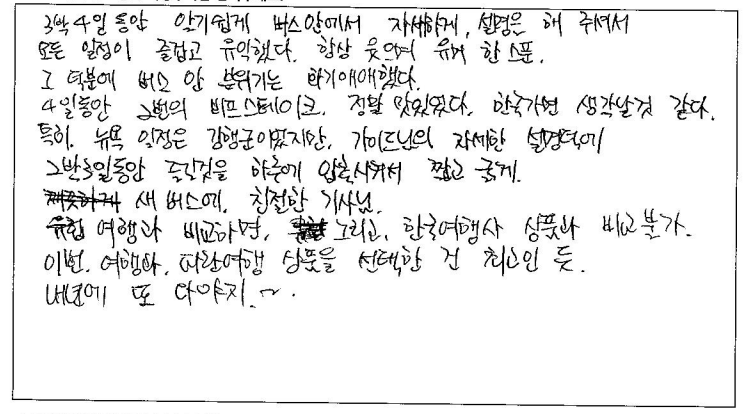 3박4일 동안 알기쉽게 버스안에서 자세하게, 설명은 해 주셔서
모든 일정이 즐겁고 유익했다. 항상 웃으며 유머 한 스푼.
그 덕분에 버스 안 분위기는 화기애애했다.
4일동안 2번의 비프스테이크. 정말 맛있었다. 한국가면 생각날것 같다.
특히. 뉴욕 일정은 강행군이었지만, 가이드님의 자세한 설명덕에
2박3일동안 즐길것을 하루에 압축시켜서 짧고 굵게.
새 버스에, 친절한 기사님.
유럽 여행과 비교하면, 그리고, 한국여행사 상품과 비교불가.
이번. 여행사, 따라여행 상품을 선택한 건 최고인 듯.
내년에 또 다야지.~.